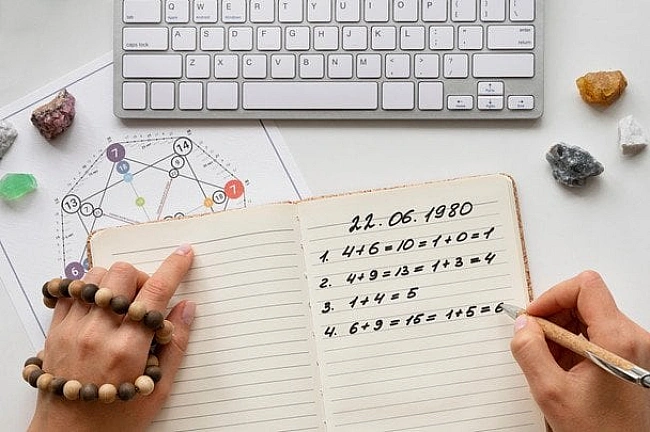 tab Q W E R T Y U I O P { [ } ] | \
caps lock A S D F G H J K L : ; " ' enter return
Z X C V B N M < , > . ? /
7 14
13 7 18 7
6
22.06.1980
1. 4+6=10=1+0=1
2. 4+9=13=1+3=4
3. 1+4=5
4. 6+9=15=1+5=6